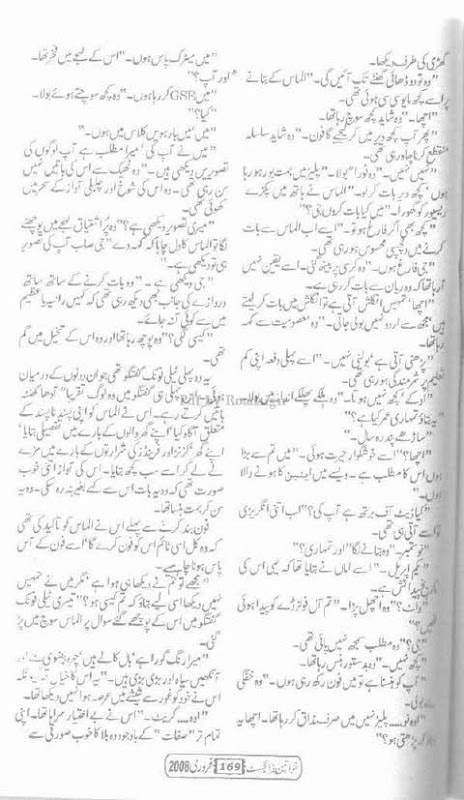 گھڑی کی طرف دیکھا۔
"وہ تو دو ڈھائی گھنٹے تک آئیں گی۔" الماس کے بتانے
پر اسے کچھ مایوسی سی ہوئی تھی۔
"اچھا۔" وہ شاید کچھ سوچ رہا تھا۔
"پھر آپ کچھ دیر میں کر لیجئے گا فون۔" وہ شاید سلسلہ
منقطع کرنا چاہ رہی تھی۔
"نہیں نہیں۔" وہ فورا" بولا۔ "پلیز میں بہت بور ہو رہا
ہوں کچھ دیر بات کر لو۔" الماس نے ہاتھ میں پکڑے
ریسیور کو گھورا۔ "میں کیا بات کروں جی؟"
"کچھ بھی اگر فارغ ہو تو۔" اسے اب الماس سے بات
کرنے میں دلچسپی محسوس ہو رہی تھی۔
"جی فارغ ہوں۔" وہ کرسی پر بیٹھ گئی۔ اسے یقین نہیں
آ رہا تھا کہ وہ ریان سے بات کر رہی ہے۔
"اچھا، تمہیں انگلش آتی ہے تو انگلش میں بات کر لیتے
ہیں مجھ سے اردو نہیں بولی جاتی۔" وہ معصومیت سے کہہ
رہا تھا۔
"پڑھنی آتی ہے بولنی نہیں۔" اسے پہلی دفعہ اپنی کم
تعلیم پر شرمندگی ہو رہی تھی۔
"او کے کچھ نہیں ہوتا۔" وہ ہلکے پھلکے انداز میں بولا
"یہ بتاؤ تمہاری عمر کیا ہے؟"
"ساڑھے پندرہ سال۔"
"اچھا؟" اسے خوشگوار حیرت ہوئی۔ "میں تم سے بڑا
ہوں اس کا مطلب ہے۔ ویسے میں ایٹین کا ہونے والا
ہوں۔"
"کیا ڈیٹ آف برتھ ہے آپ کی؟" اب اتنی انگریزی
تو اسے آتی ہی تھی۔
"نو ستمبر۔" وہ بتانے لگا "اور تمہاری؟"
"یکم اپریل۔" اسے اماں نے بتایا تھا کہ یہی اس کی
تاریخ پیدائش ہے۔
"واٹ؟" وہ اچھل پڑا۔ "تم آل فولز ڈے کو پیدا ہوئی
تھیں؟"
"جی؟" وہ مطلب سمجھ نہیں پائی تھی۔
"کچھ نہیں۔" وہ بدستور ہنس رہا تھا۔
"آپ کو ہنسنا ہے تو میں فون رکھ رہی ہوں۔" وہ خفگی
سے بولی۔
"اوہ نو۔۔۔۔ پلیز نہیں میں صرف مذاق کر رہا تھا۔ اچھا یہ
بتاؤ کہ پڑھتی ہو؟"
"میں میٹرک پاس ہوں۔" اس کے لہجے میں فخر تھا۔
"اور آپ؟"
"میں GSE کر رہا ہوں۔" وہ کچھ سوچتے ہوئے بولا۔
"کیا؟"
"میں بارہویں کلاس میں ہوں۔"
"میں نے آپ کی، میرا مطلب ہے آپ لوگوں کی
تصویریں دیکھی ہیں۔" وہ ٹھیک سے اس کی باتیں نہیں
سن رہی تھی۔ وہ اس کی شوخ اور چلبلی آواز کے سحر میں
کھوئی تھی۔
"میری تصویر دیکھی ہے؟" وہ پر اشتیاق لہجے میں پوچھنے
لگا تو الماس کا دل چاہا کہ کہہ دے "جی صاحب آپ کی تصویر
ہی تو دیکھی ہے۔"
"جی دیکھی ہے۔" وہ بات کرنے کے ساتھ ساتھ
دروازے کی جانب بھی دیکھ رہی تھی کہ کہیں رانیہ یا عظیم
میں سے کوئی آ نہ جائے۔
"کیسی لگی؟" وہ پوچھ رہا تھا اور وہ اس کے تخیل میں گم
تھی۔
یہ وہ پہلی ٹیلی فونک گفتگو تھی جو ان دونوں کے درمیان
ہوئی۔ اس پہلی ہی گفتگو میں وہ لوگ تقریبا" آدھا گھنٹہ
باتیں کرتے رہے۔ اس نے الماس کو اپنی پسند ناپسند کے
متعلق آگاہ کیا، اپنے گھر والوں کے بارے میں تفصیلی بتایا،
اپنے کزنز اور فرینڈز کی شرارتوں کے بارے میں مزے
لے لے کر اسے سب کچھ بتایا۔ اس کی آواز اتنی خوب
صورت تھی کہ وہ یہ بات اس سے کہے بغیر نہ رہ سکی۔ وہ یہ
سن کر بہت ہنسا تھا۔
فون بند کرنے سے پہلے اس نے الماس کو تاکید کی تھی
کہ وہ کل اسی ٹائم اس کو فون کرے گا، اسے فون کے آس
پاس ہونا چاہیے۔
"مجھے تو تم نے دیکھا ہی ہوا ہے مگر میں نے تمہیں
نہیں دیکھا اسی لیے بتاؤ کہ تم کیسی ہو؟" تیسری ٹیلی فونک
گفتگو میں اس کے پوچھے گئے سوال پر الماس سوچ میں پڑ
گئی۔
"میرا رنگ گورا ہے، بال کالے ہیں، چہرہ بیضوی ہے اور
آنکھیں سیاہ اور بڑی بڑی ہیں۔" یہ اس کا خیال تھا ورنہ
اس نے خود کو غور سے شیشے میں عرصہ ہوا نہیں دیکھا تھا۔
"اوہ۔۔۔۔ گریٹ۔" اس نے بے اختیار سراہا تھا۔ اپنی
تمام تر "صفات" کے باوجود وہ بلا کا خوب صورتی سے
خواتین ڈائجسٹ 169 فروری 2008